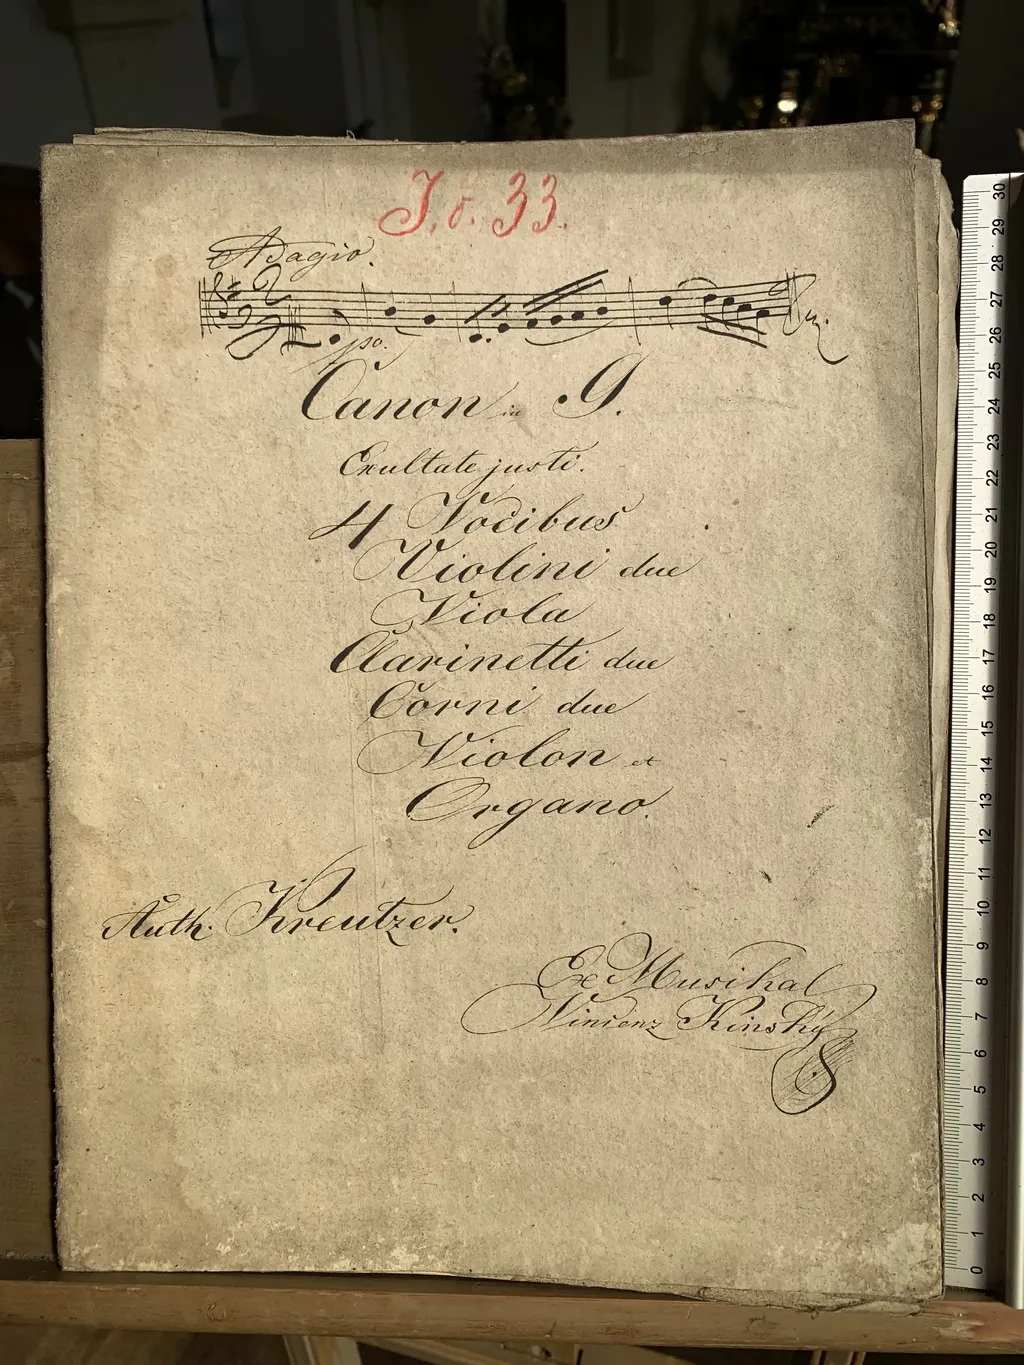 J. o. 33.
Adagio.
po.
Canon in G.
Exultate justi.
4 Vocibus
Violini due
Viola
Clarinetti due
Corni due
Violon et
Organo.
Auth. Kreutzer.
Ex Musikal
Vincenz Kinsky
30
29
28
27
26
25
24
23
22
21
20
19
18
17
16
15
14
13
12
11
10
9
8
7
6
5
4
3
2
1
0